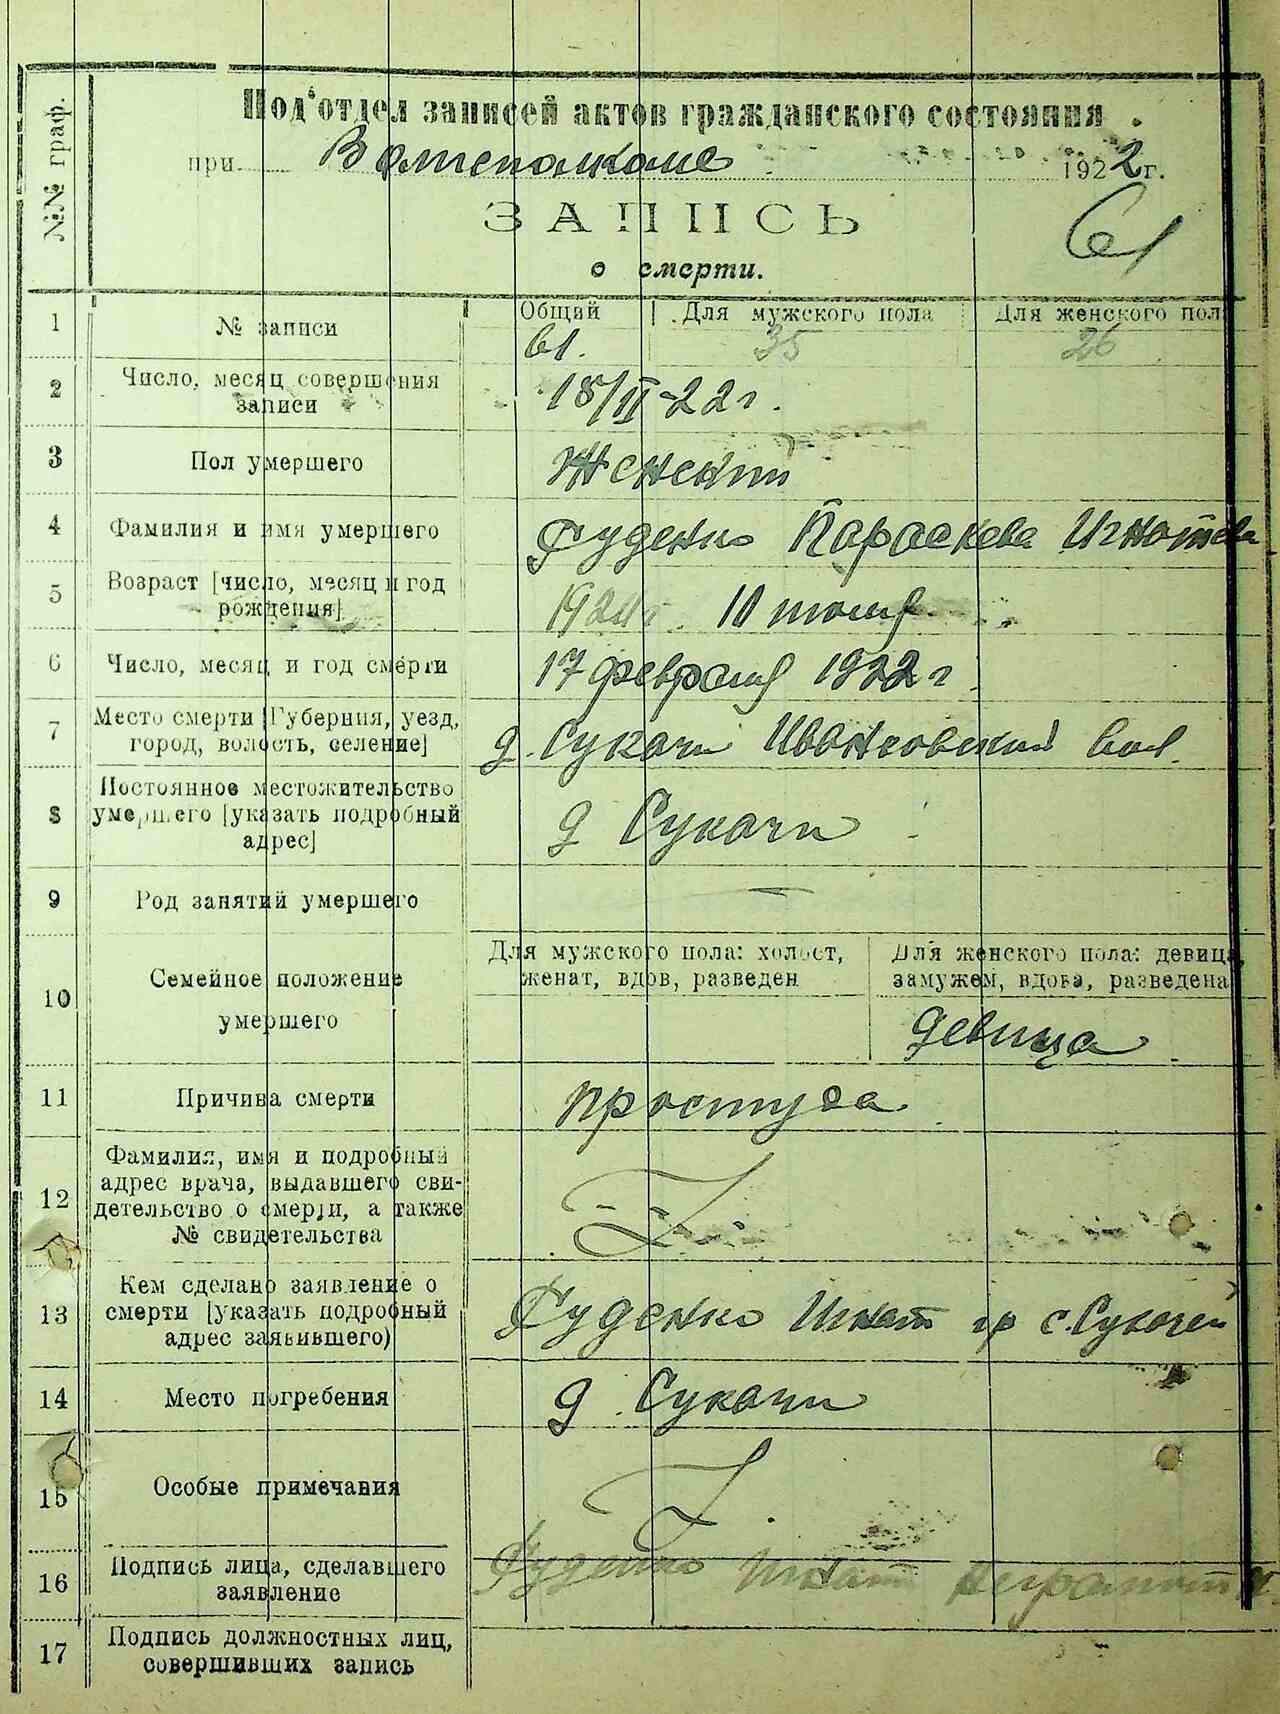 №№ граф.
Под'отдел записей актов гражданского состояния
при Волисполкоме 1922 г.
ЗАПИСЬ
61
о смерти.
1 № записи Общий Для мужского пола Для женского пол
61. 35 26
2 Число, месяц совершения
записи
18/II-22 г.
3 Пол умершего
Женский
4 Фамилия и имя умершего
Руденко Параскева Игнатева
5 Возраст [число, месяц и год
рождения]
10 июля
6 Число, месяц и год смерти
17 февраля 1922 г
7 Место смерти [Губерния, уезд,
город, волость, селение]
д. Сукачи Иванковский вол.
8 Постоянное местожительство
умершего [указать подробный
адрес]
д Сукачи
9 Род занятий умершего
10 Семейное положение
умершего
Для мужского пола: холост,
женат, вдов, разведен
Для женского пола: девица,
замужем, вдова, разведена
девица
11 Причина смерти
простуда
12 Фамилия, имя и подробный
адрес врача, выдавшего сви-
детельство о смерти, а также
№ свидетельства
13 Кем сделано заявление о
смерти [указать подробный
адрес заявившего)
Руденко Игнат гр с. Сукачей
14 Место погребения
д. Сукачи
15 Особые примечания
16 Подпись лица, сделавшего
заявление
Руденко Игнат
17 Подпись должностных лиц,
совершивших запись